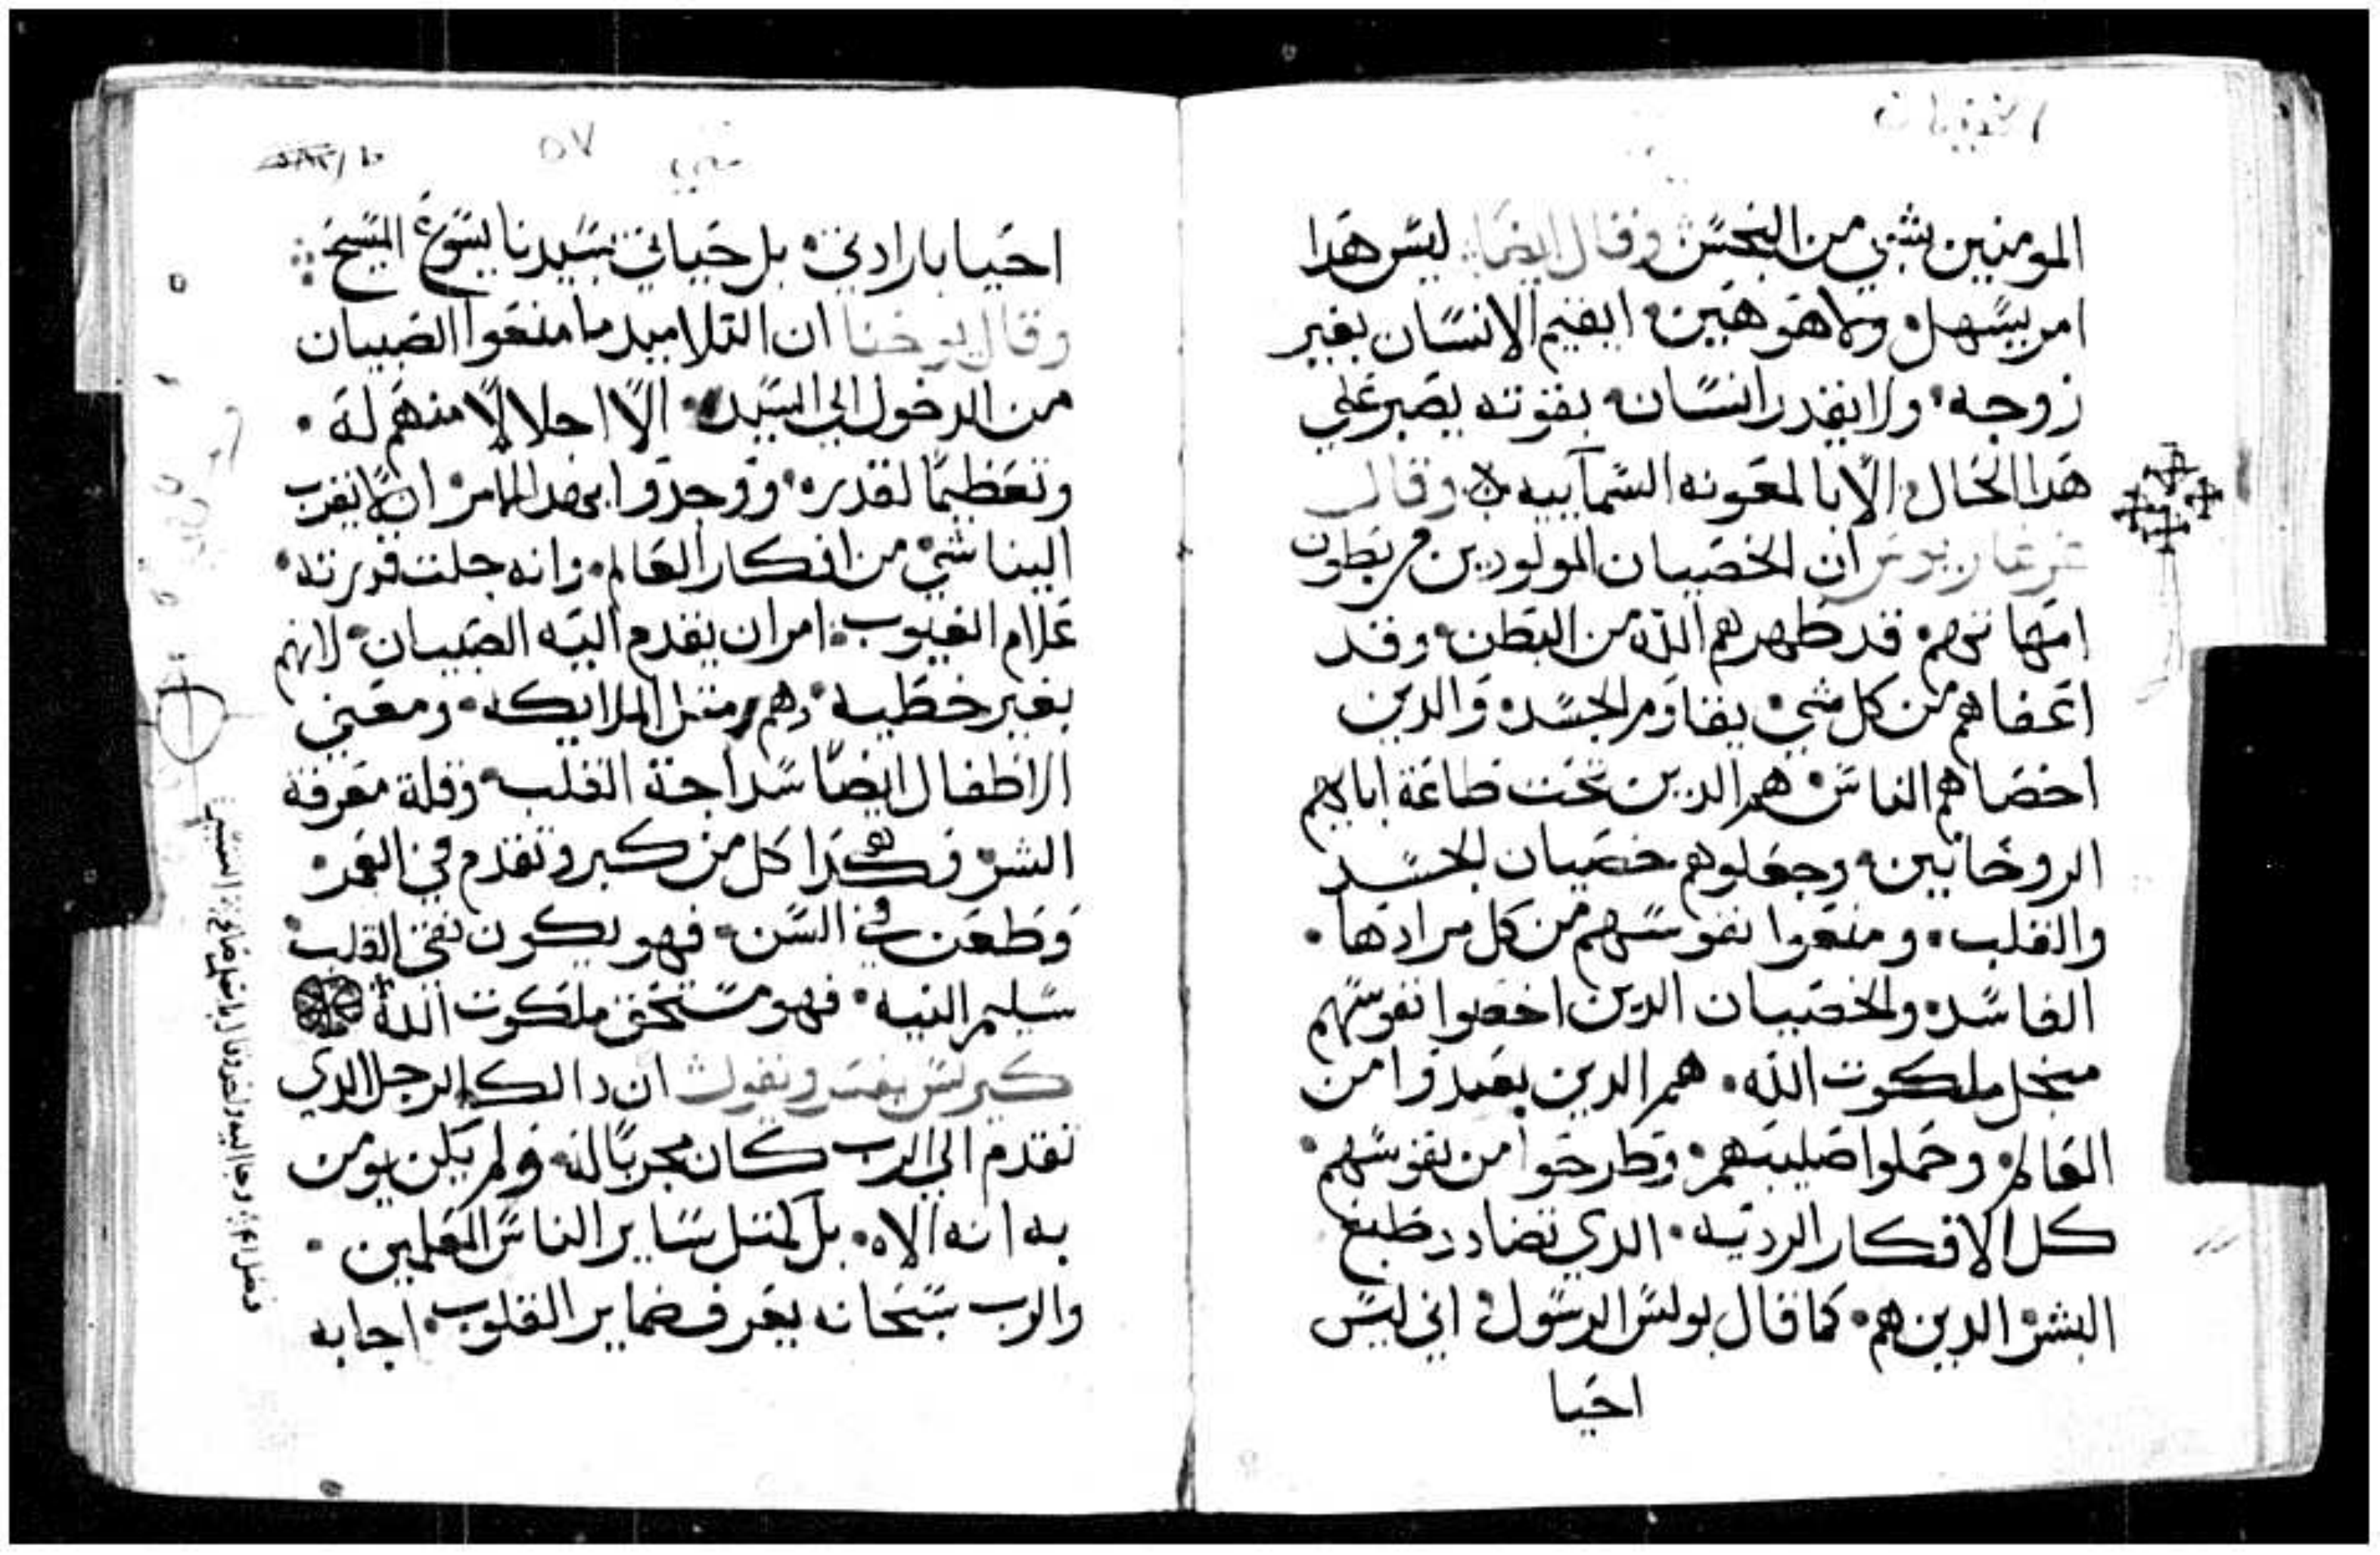 المومنين بشي من النجس وقال ايضا ليس هدا
امر يسهل ولا هو هين ايقيم الانسان بغير
زوجه ولا يقدر انسان بقوته يصبر علي
هدا الحال الا بالمعونه السماييه وقال
ان الخصيان المولودين من بطون
امهاتهم قد طهرهم الله من البطن وقد
اعفاهم من كل شي يقاوم الجسد والدين
اخصاهم الناس هم الدين تحت طاعة اباهم
الروحانيين وجعلوهم خصيان الجسد
والقلب ومنعوا نفوسهم من كل مرادها
الفاسد والخصيان الدين اخصوا نفوسهم
منجل ملكوت الله هم الدين بعدوا من
العالم وحملوا صليبهم وطرحوا من نفوسهم
كل الافكار الرديه الدي تضادد طبع
البشر الدين هم كما قال بولس الرسول اني ليس
احيا
٥٧
احيا بارادتي بل حياتي بسيدنا يسوع المسيح
وقال يوحنا ان التلاميد ما منعوا الصبيان
من الدخول الي السيد الا اجلالا منهم له
وتعظيما لقدره ووجدوا بهدا الامر ان لا يقرب
الينا شي من افكار العالم وانه جلت قدرته
علام الغيوب امر ان يقدم اليه الصبيان لانهم
بغير خطيه وهم متل الملايكه ومعني
الاطفال ايضا سداجة القلب وقلة معرفة
الشر فهكدا كل من كبر وتقدم في العمر
وطعن في السن فهو يكون نقي القلب
سليم النيه فهو مستحق ملكوت الله
كيرلس يفسر ويقول ان دالك الرجل الدي
تقدم الي الرب كان مجربا له ولم يكن يومن
به انه الاه بل كمتل ساير الناس المعلمين
والرب سبحانه يعرف ضماير القلوب اجابه